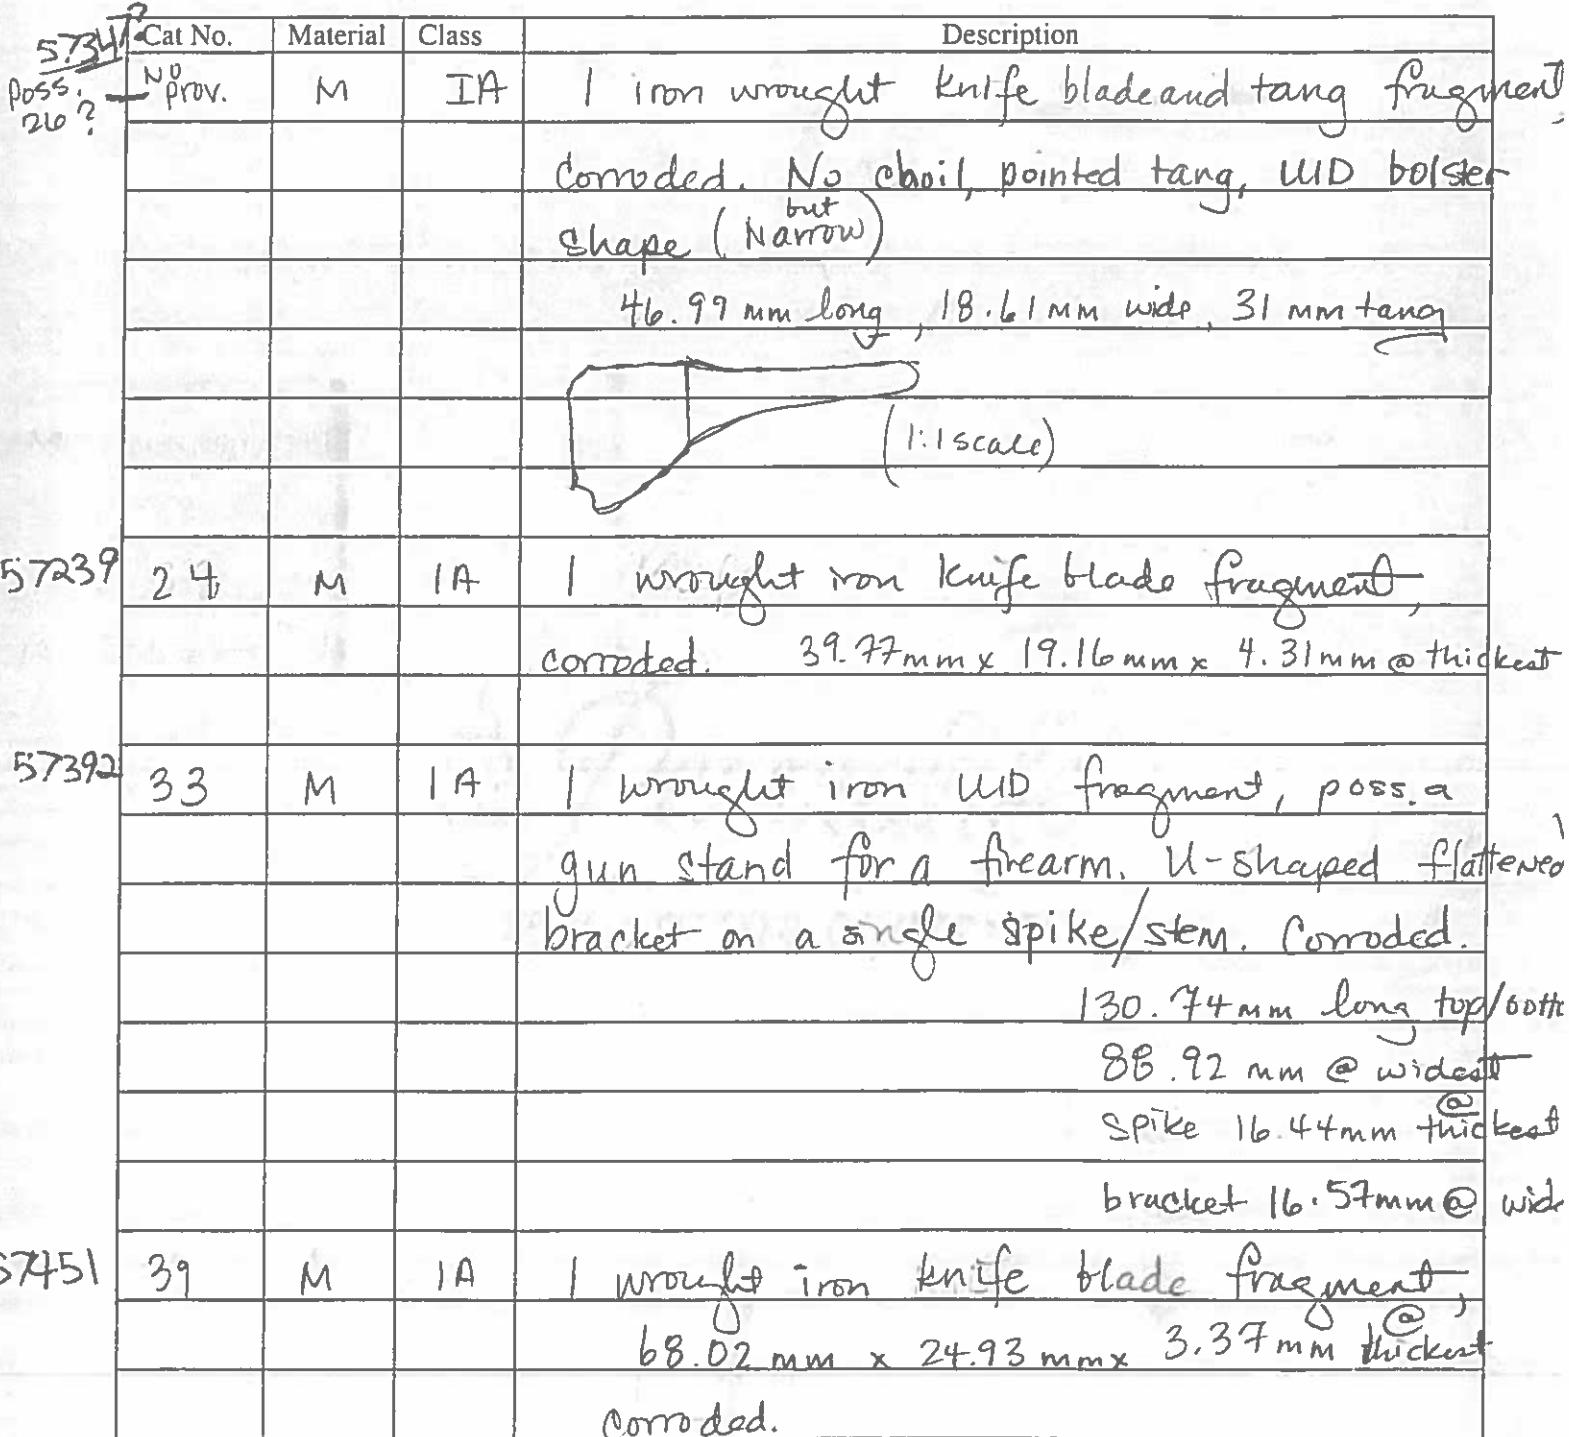 57347?
Cat No. Material Class Description
Poss. 26? No prov. M IA 1 iron wrought knife blade and tang fragment,
corroded. No choil, pointed tang, UID bolster
shape (but Narrow)
46.99 mm long, 18.61 mm wide, 31 mm tang
(1:1 scale)
57239 24 M IA 1 wrought iron knife blade fragment,
corroded. 39.77mm x 19.16mm x 4.31mm @ thickest
57392 33 M IA 1 wrought iron UID fragment, poss. a
gun stand for a firearm. U-shaped flattened
bracket on a single spike/stem. Corroded.
130.74mm long top/bott
88.92 mm @ widest
spike 16.44mm @ thickest
bracket 16.57mm @ wid
57451 39 M IA 1 wrought iron knife blade fragment,
68.02 mm x 24.93 mm x 3.37mm @ thickest
corroded.